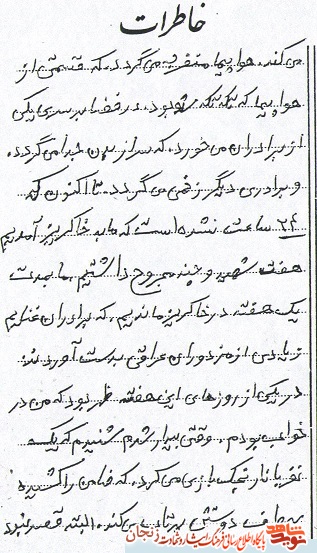 خاطرات
می کند. هواپیما منفجر می گردد. که قسمتی از
هواپیما که تکه تکه شده بود. در فضا بر سر یکی
از برادران می خورد. که سر از بدن جدا می گردد.
و برادری دیگر زخمی می گردد. تا اکنون که
۲۴ ساعت نشده است که ما به خاکریز آمدیم
هفت شهید و چند مجروح داشتیم. ما بمدت
یک هفته در خاکریز ماندیم. که برادران غنایم
زیادی از مزدوران عراقی بدست آوردند
در یکی از روزهای این هفته ظهر بود که من در
خواب بودم. وقتی بیدار شدم شنیدم که یک
نفر با نارنجک بازی می کرد. که ضامن را کشیده
به طرف دوستش پرتاب می کند. البته قصد نبود
نوید شاهد
پایگاه اطلاع رسانی فرهنگ ایثار و شهادت زنجان